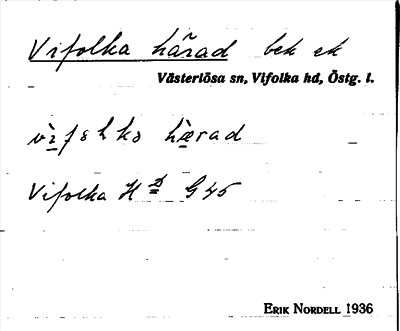 Vifolka härad bek ek
Västerlösa sn, Vifolka hd, Östg. l.
härad
Vifolka Hd G 45
ERIK NORDELL 1936